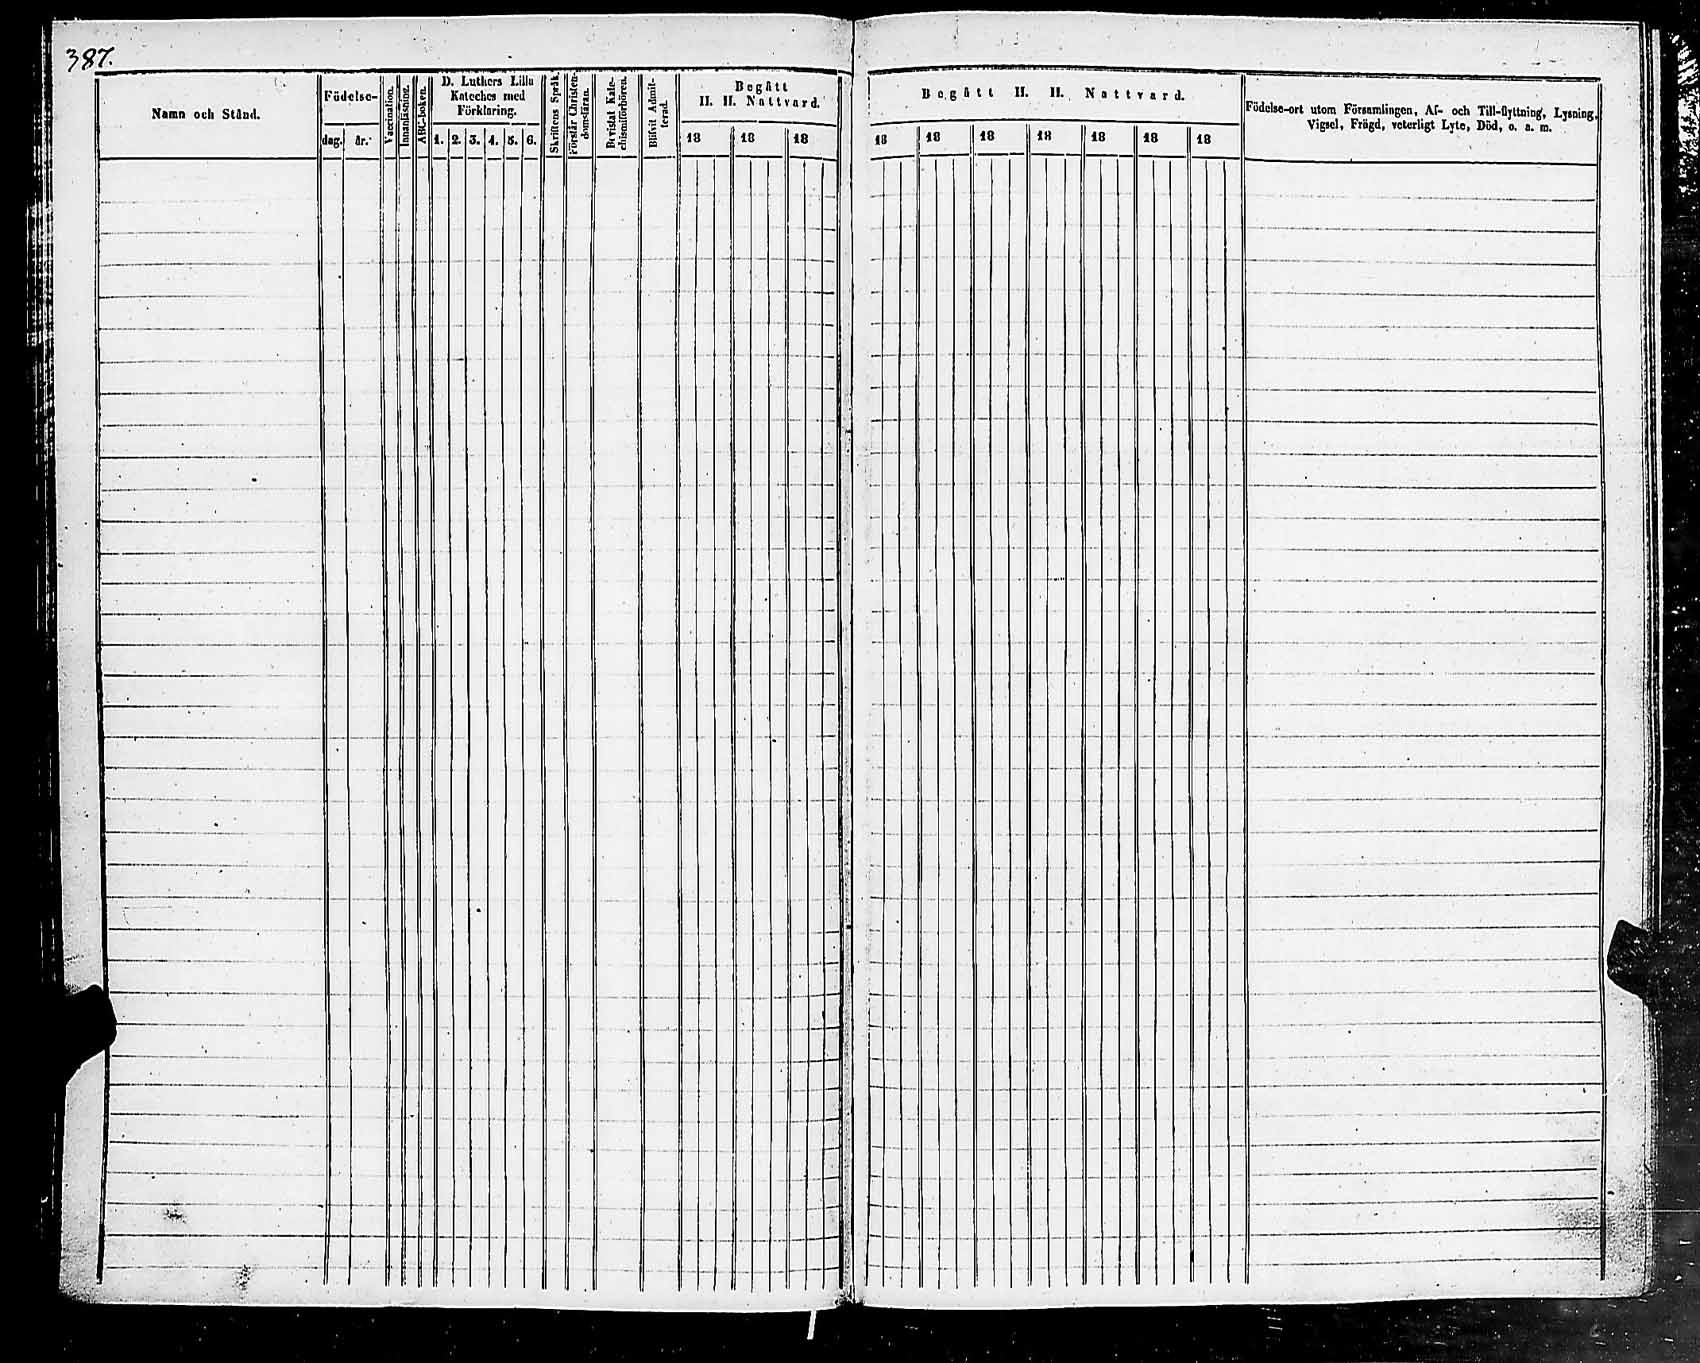 387.
Namn och Stånd.
Födelse-
dag. år.
Vaccination.
Innanläsning.
ABC-boken.
D. Luthers Lilla
Kateches med
Förklaring.
1. 2. 3. 4. 5. 6.
Skriftens Språk.
Förstår Christen-
domsläran.
Bevistat Kate-
chismiförhören.
Blifvit Admit-
terad.
Begått
H. H. Nattvard.
18 18 18
Begått H. H. Nattvard.
18 18 18 18 18 18 18
Födelse-ort utom Församlingen, Af- och Till-flyttning, Lysning,
Vigsel, Frägd, veterligt Lyte, Död, o. a. m.